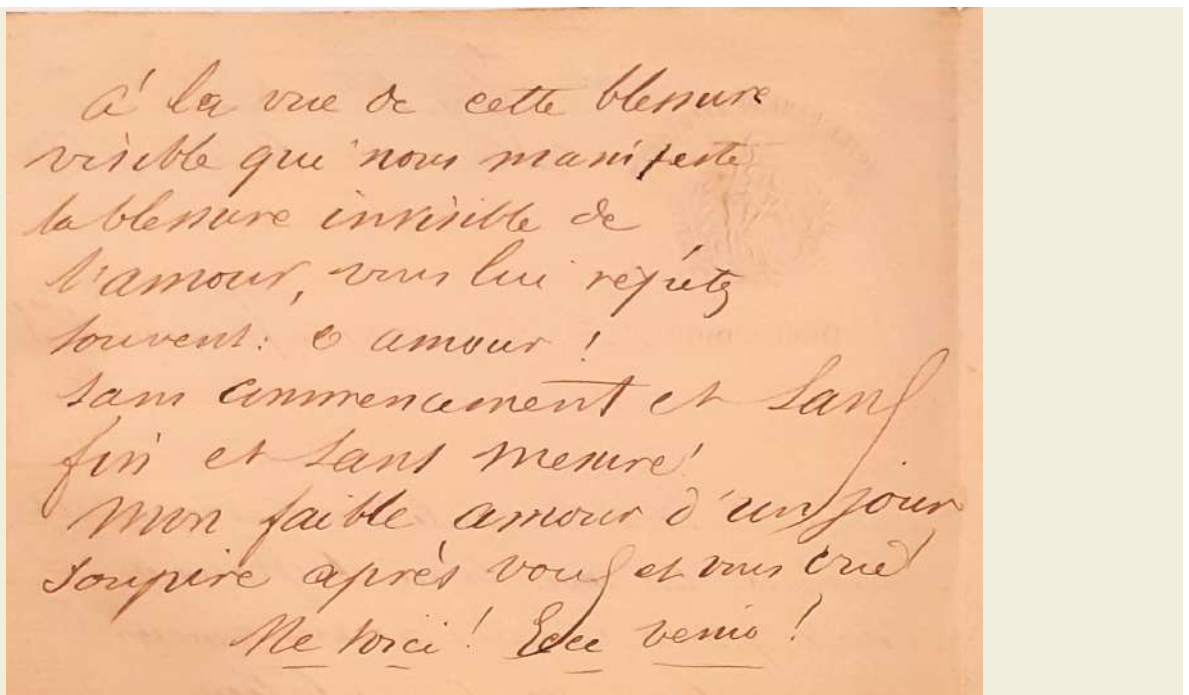 à la vue de cette blessure
visible que nous manifeste
la blessure invisible de
l'amour, vous lui répétez
souvent: O amour !
sans commencement et sans
fin et sans mesure !
Mon faible amour d'un jour
soupire après vous et vous crie !
Me voici ! Ecce venio !